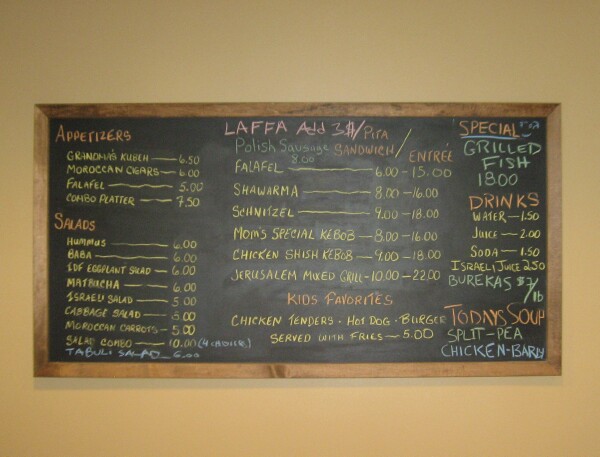 APPETIZERS
GRANDMA'S KUBEH — 6.50
MOROCCAN CIGARS — 6.00
FALAFEL — 5.00
COMBO PLATTER — 7.50
SALADS
HUMMUS — 6.00
BABA — 6.00
IDF EGGPLANT SALAD — 6.00
MATBUCHA — 6.00
ISRAELI SALAD — 5.00
CABBAGE SALAD — 5.00
MOROCCAN CARROTS — 5.00
SALAD COMBO — 10.00 (4-CHOICE)
TABULI SALAD — 6.00
LAFFA Add 3$/PITA
Polish Sausage SANDWICH/
8.00
ENTRÉE
FALAFEL — 6.00 — 15.00
SHAWARMA — 8.00 — 16.00
SCHNITZEL — 9.00 — 18.00
MOM'S SPECIAL KEBOB — 8.00 — 16.00
CHICKEN SHISH KEBOB — 9.00 — 18.00
JERUSALEM MIXED GRILL — 10.00 — 22.00
KIDS FAVORITES
CHICKEN TENDERS · HOT DOG · BURGER
SERVED WITH FRIES — 5.00
SPECIAL
GRILLED
FISH
1800
DRINKS
WATER — 1.50
JUICE — 2.00
SODA — 1.50
ISRAELI JUICE 2.50
BUREKAS $7/
lb
TODAYS SOUP
SPLIT-PEA
CHICKEN-BARLY